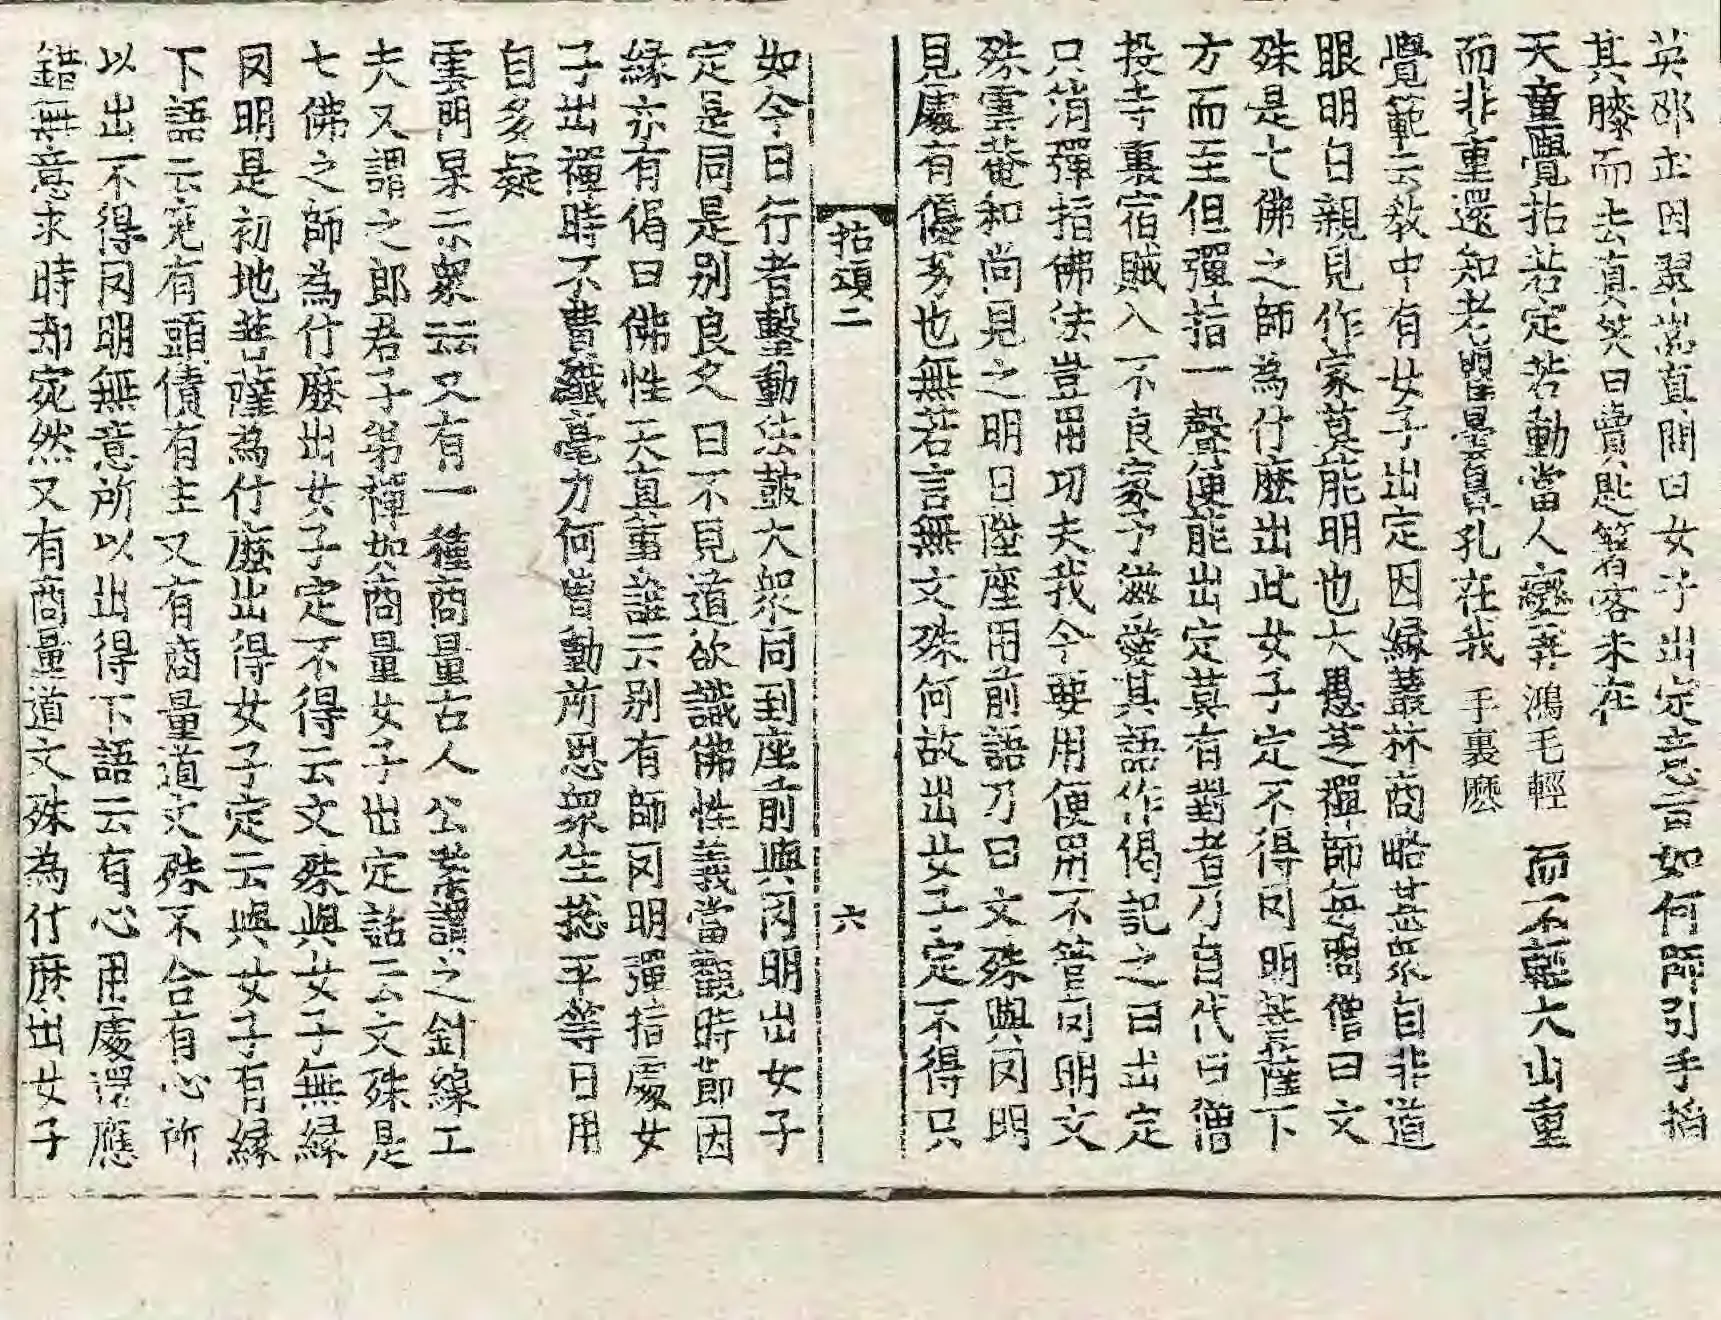 英邵武因翠嵓真問曰女子出定意旨如何師引手搯
其膝而去真笑曰賣匙筯客未在
天童覺拈若定若動當人變弄鴻毛輕而不輕太山重
而非重還知老瞿曇鼻孔在我手裏麽
覺範云教中有女子出定因緣叢林商略甚衆自非道
眼明白親見作家莫能明也大愚芝禪師每問僧曰文
殊是七佛之師為什麽出此女子定不得罔明菩薩下
方而至但彈指一聲便能出定莫有對者乃自代曰僧
投寺裏宿賊入不良家予滋愛其語作偈記之曰出定
只消彈指佛法豈用功夫我今要用便用不管罔明文
殊雲菴和尚見之明日陞座用前語乃曰文殊與罔明
見處有優劣也無若言無文殊何故出女子定不得只
拈頌二 六
如今日行者擊動法鼓大衆同到座前與罔明出女子
定是同是別良久曰不見道欲識佛性義當觀時節因
緣亦有偈曰佛性天真事誰云別有師罔明彈指處女
子出禪時不費纖毫力何曾動所思衆生捴平等日用
自多疑
雲門杲示衆云云又有一種商量古人公案謂之針線工
夫又謂之郎君子弟禪如商量女子出定話云文殊是
七佛之師為什麽出女子定不得云文殊與女子無緣
罔明是初地菩薩為什麽出得女子定云與女子有緣
下語云寃有頭債有主又有商量道文殊不合有心所
以出不得罔明無意所以出得下語云有心用處還應
錯無意求時却宛然又有商量道文殊為什麽出女子